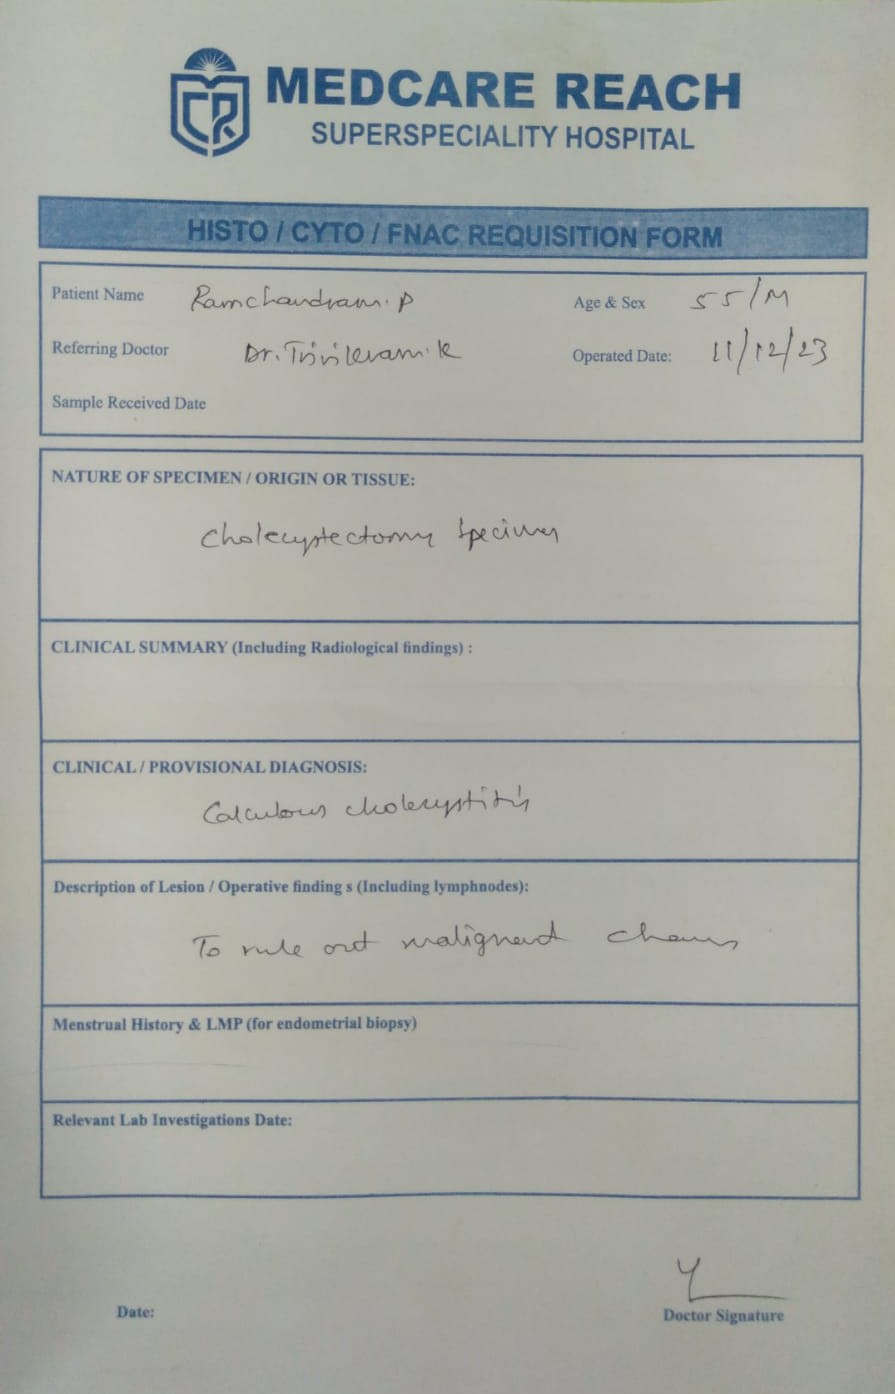 MEDCARE REACH
SUPERSPECIALITY HOSPITAL
HISTO / CYTO / FNAC REQUISITION FORM
Patient Name Ramchandram. P Age & Sex 55/M
Referring Doctor Dr. Trivikram. K Operated Date: 11/12/23
Sample Received Date
NATURE OF SPECIMEN / ORIGIN OR TISSUE:
Cholecystectomy Specimen
CLINICAL SUMMARY (Including Radiological findings) :
CLINICAL / PROVISIONAL DIAGNOSIS:
Calculous cholecystitis
Description of Lesion / Operative finding s (Including lymphnodes):
To rule out malignant
Menstrual History & LMP (for endometrial biopsy)
Relevant Lab Investigations Date:
Date:
Doctor Signature